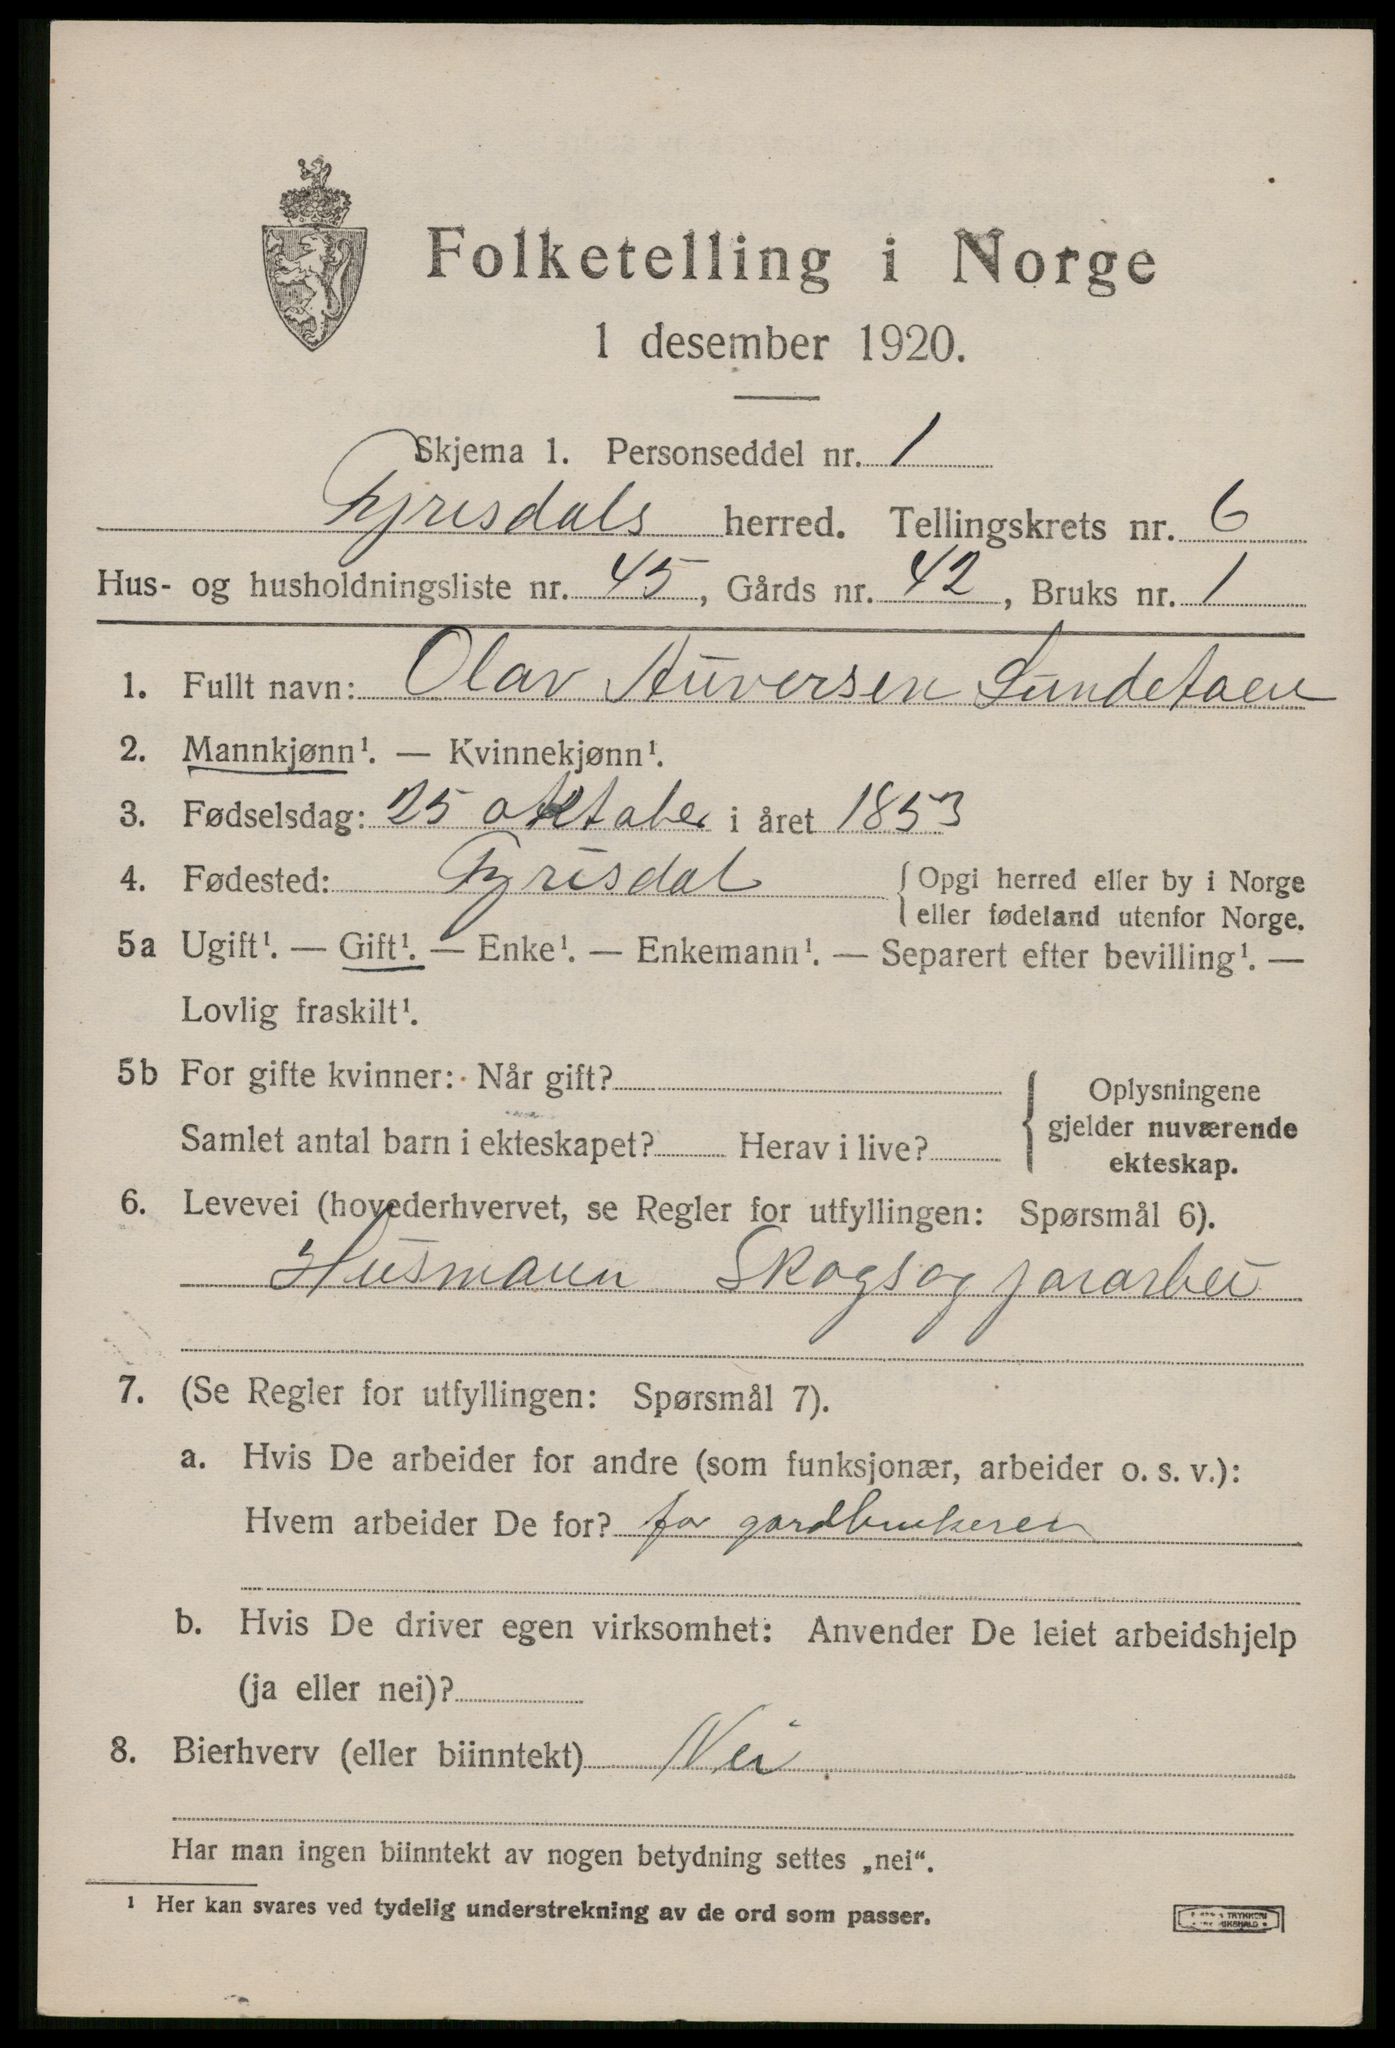 Folketelling i Norge
1 desember 1920.
Skjema 1. Personseddel nr. 1
Fyrisdals herred. Tellingskrets nr. 6
Hus- og husholdningsliste nr. 45, Gårds nr. 42, Bruks nr. 1
1. Fullt navn: Olav Auversen Sundetaen
2. Mannkjønn¹. — Kvinnekjønn¹.
3. Fødselsdag: 25 oktober i året 1853
4. Fødested: Fyrisdal
{ Opgi herred eller by i Norge
eller fødeland utenfor Norge.
5a Ugift¹. — Gift¹. — Enke¹. — Enkemann¹. — Separert efter bevilling¹. —
Lovlig fraskilt¹.
5b For gifte kvinner: Når gift?
Samlet antal barn i ekteskapet? Herav i live?
{ Oplysningene
gjelder nuværende
ekteskap.
6. Levevei (hovederhvervet, se Regler for utfyllingen: Spørsmål 6).
Husmann Skogs og jorarbei
7. (Se Regler for utfyllingen: Spørsmål 7).
a. Hvis De arbeider for andre (som funksjonær, arbeider o. s. v.):
Hvem arbeider De for? for gardbrukeren
b. Hvis De driver egen virksomhet: Anvender De leiet arbeidshjelp
(ja eller nei)?
8. Bierhverv (eller biinntekt) Nei
Har man ingen biinntekt av nogen betydning settes „nei“.
¹ Her kan svares ved tydelig understrekning av de ord som passer.